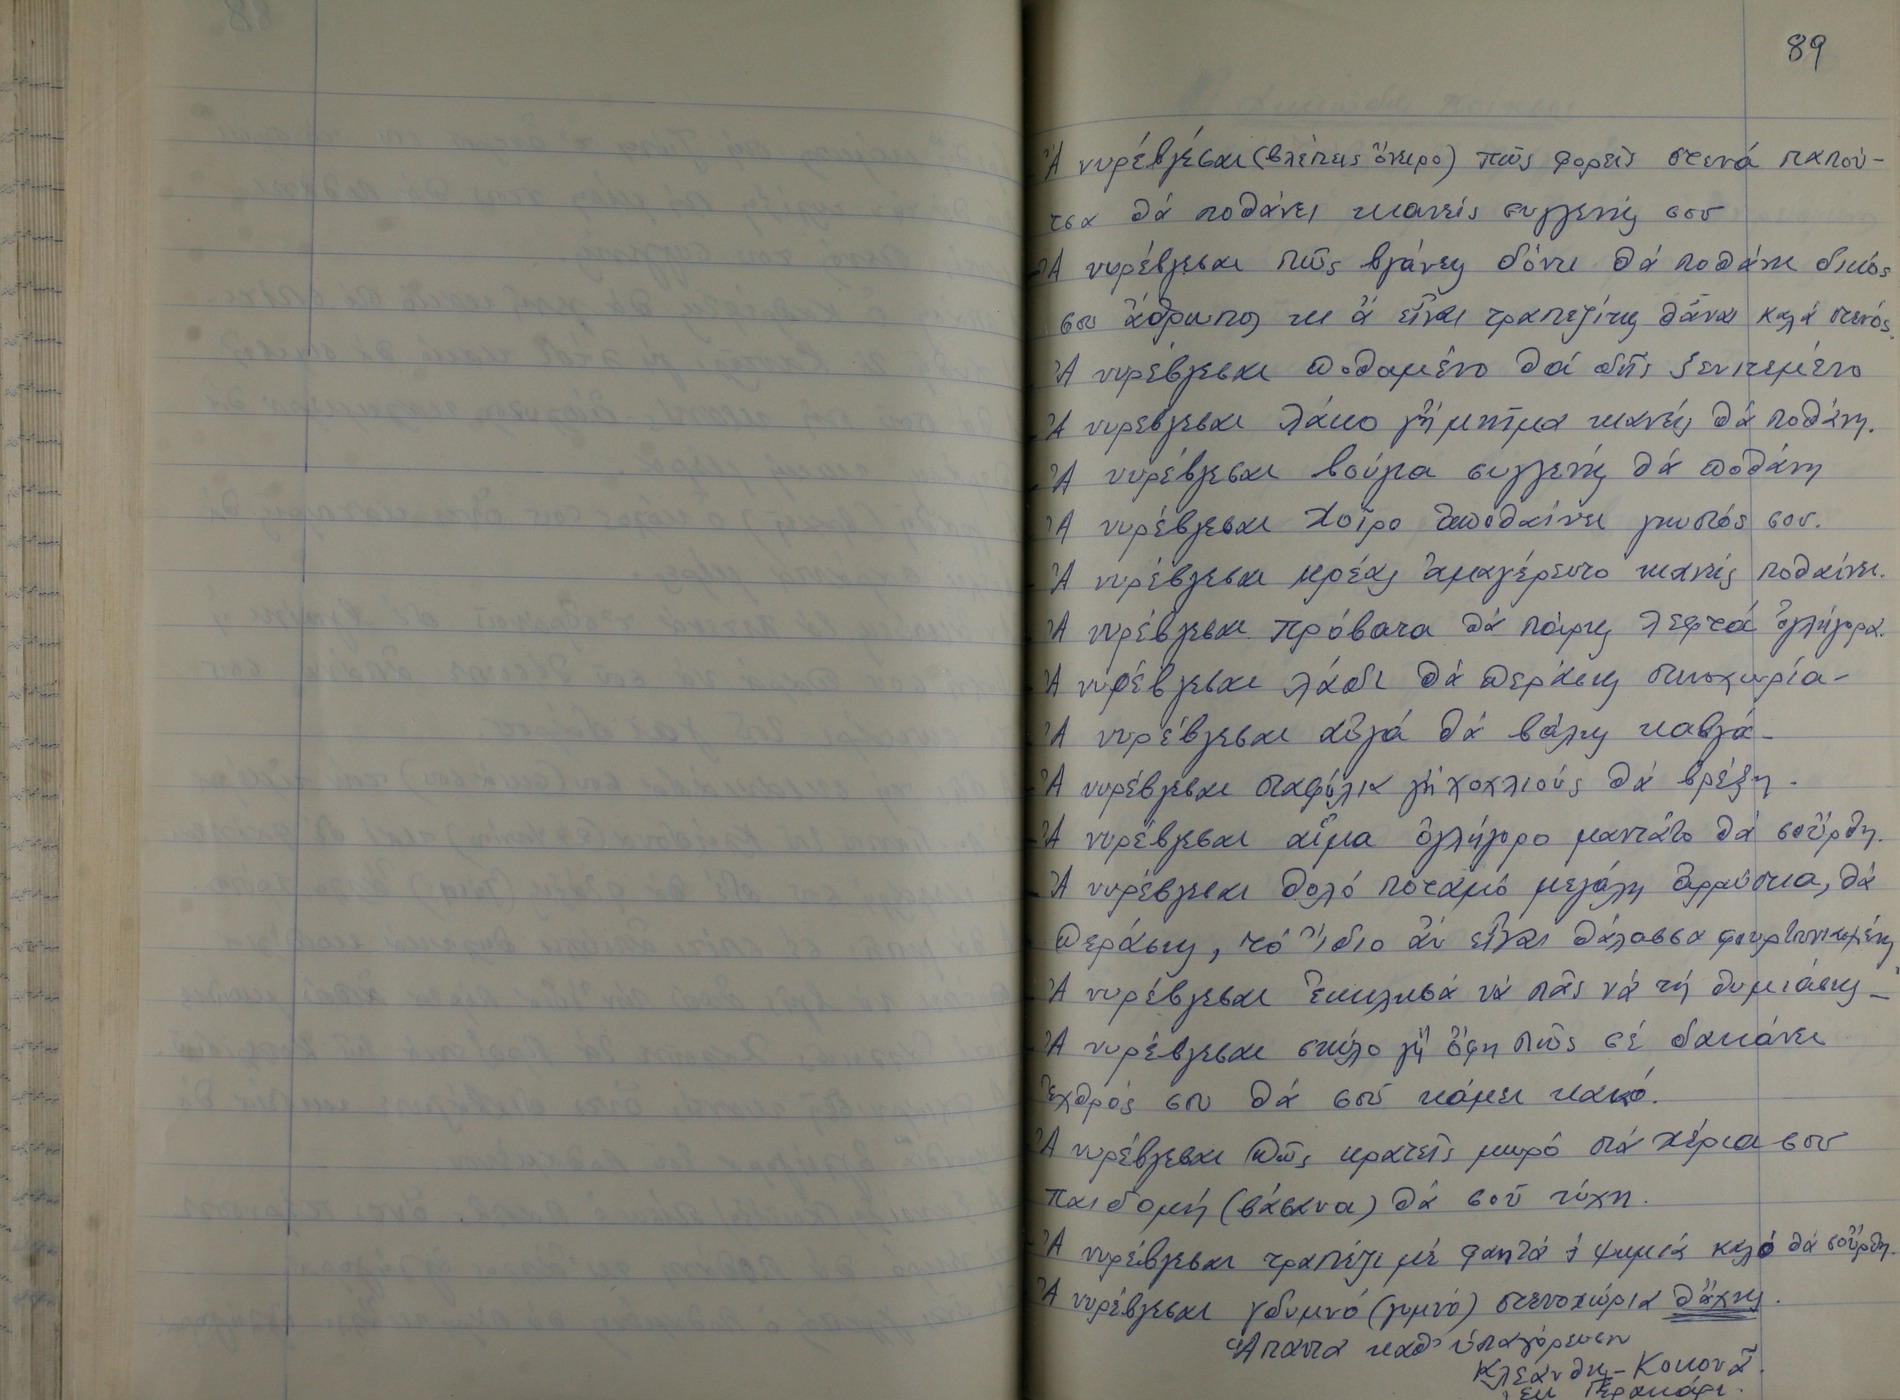 89
Ἄ νυρέβγέσαι (βλέπεις ὄνειρο) πῶς φορεῖς στενά παπού-
τσα θά ποθάνει κιανείς συγγενής σου
Ἄ νυρέβγεσαι πῶς βγάνεις δόντι θά ποθάνη δικός
σου ἄθρωπος κι ἄ εἶναι τραπεζίτης θἆναι καλά στενός.
Ἄ νυρέβγεσαι ποθαμένο θά δῇς ξενιτεμένο
Ἄ νυρέβγεσαι λάκο γἤ μνῆμα κιανείς θά ποθάνη.
Ἄ νυρέβγεσαι βούγια συγγενής θά ποθάνη
Ἄ νυρέβγεσαι χοῖρο ἀποθαίνει γνωστός σου.
Ἄ νυρέβγεσαι κρέας ἀμαγέρευτο κιανείς ποθαίνει.
Ἄ νυρέβγεσαι πρόβατα θά πάρης λεφτά ὀγλήγορα.
Ἄ νυρέβγεσαι λάδι θά περάσης στενοχωρία-
Ἄ νυρέβγεσαι αὐγά θά βάλης καβγά-
Ἄ νυρέβγεσαι σταφύλια γἤ χοχλιούς θά βρέξη.
Ἄ νυρέβγεσαι αἷμα ὀγλήγορο μαντάτο θά σοὔρθη.
Ἄ νυρέβγεσαι θολό ποταμό μεγάλη ἀρρώστια, θά
περάσης, τό ἴδιο ἄν εἶναι θάλασσα φουρτουνιασμένη
Ἄ νυρέβγεσαι ἐκκλησά νά πᾶς νά τή θυμιάσης-
Ἄ νυρέβγεσαι σκύλο γἤ ὄφη πῶς σέ δακάνει
ἐχθρός σου θά σοῦ κάμει κακό.
Ἄ νυρέβγεσαι πῶς κρατεῖς μωρό στά χέρια σου
παιδομή (βάσανα) θά σοῦ τύχη.
Ἄ νυρέβγεσαι τραπέζι μέ φαητά ἤ ψωμιά καλό θά σοὔρθη.
Ἄ νυρέβγεσαι γδυμνό (γυμνό) στενοχώρια θἄχης.
Ἅπαντα καθ' ὑπαγόρευσιν
Κλεάνθη - Κοκονᾶ.
ἐκ Γερακάρι.